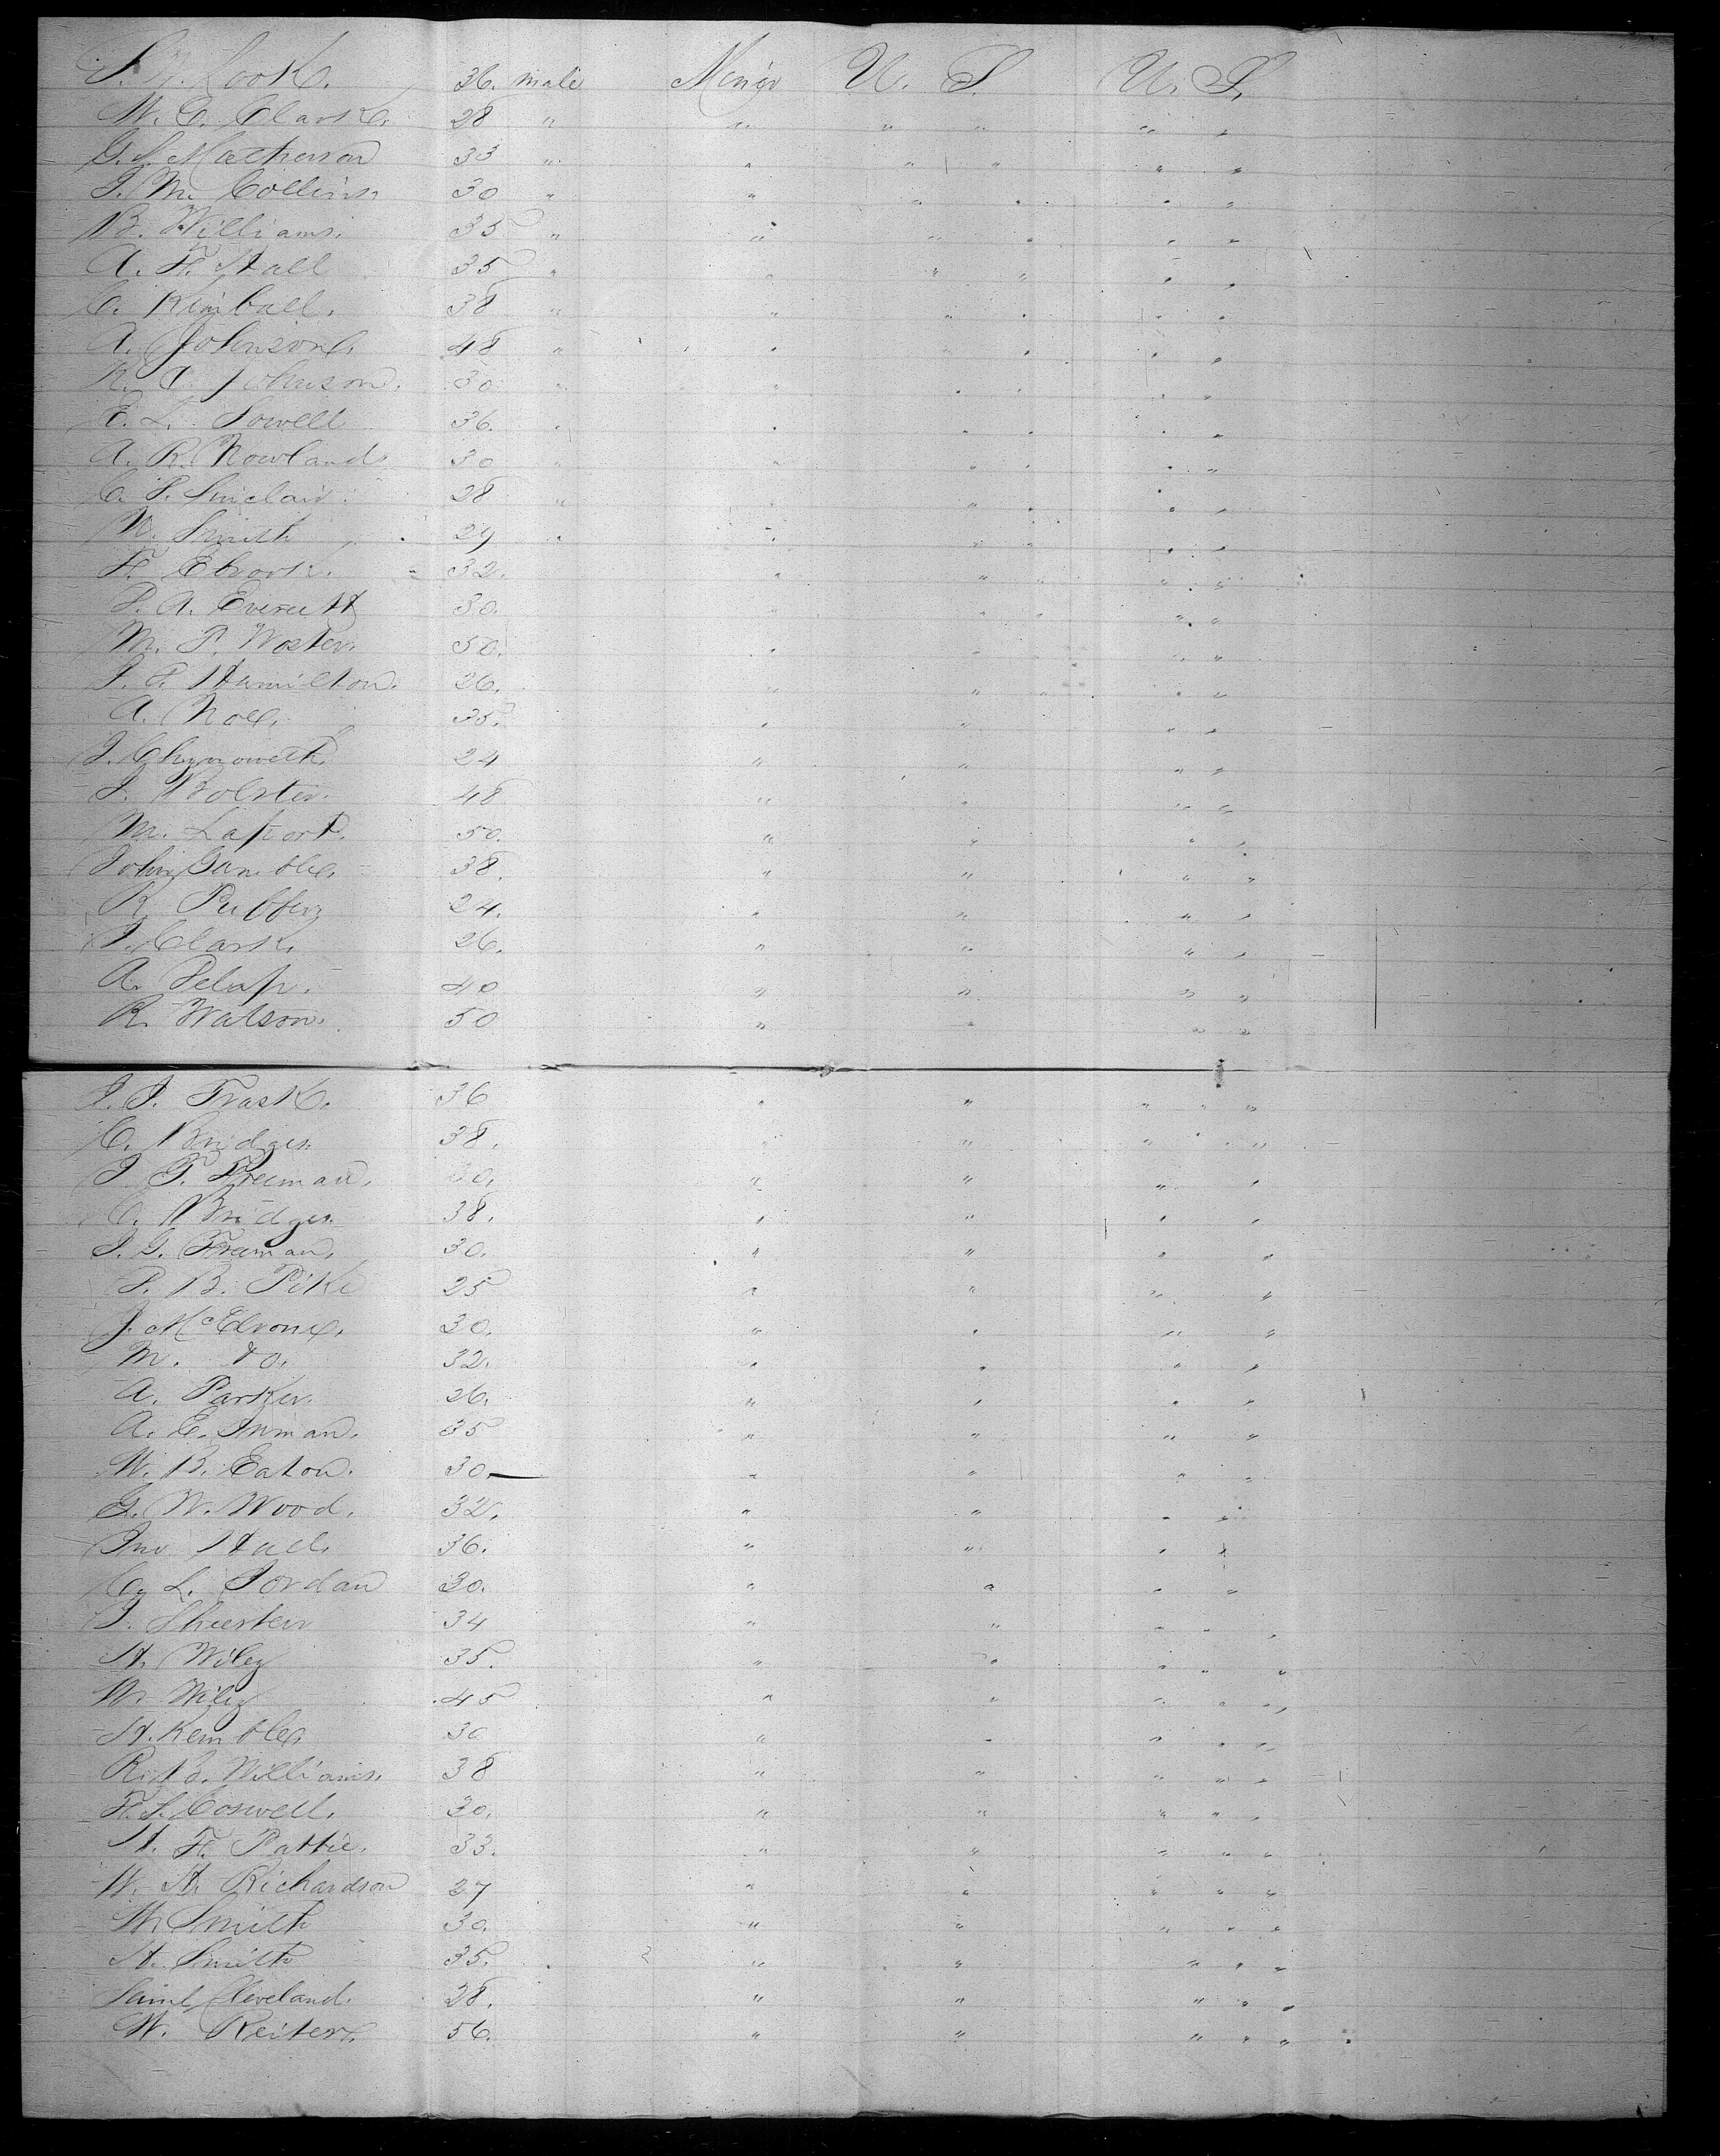 S. W. Cook. 36. male Miner U. S. U. S.
W. C. Clark. 28 " " " " " "
G. S. Matherson 33 " " " " " "
J. M. Collins 30 " " " " " "
B. Williams. 35 " " " " " "
A. F. Hall 35 " " " " " "
C. Kimball. 38 " " " " " "
A. Johnson. 48 " " " " " "
R. A. Johnson. 30 " " " " " "
E. L. Sowell 36. " " " " " "
A. R. Nowland 30 " " " " " "
C. P. Sinclair. 28 " " " " " "
W. Smith 29 " " " " " "
F. 32. " " " " "
P. A. Everett 30. " " " " "
M. P. Woster. 50. " " " "
J. P. Hamilton. 26. " " " " "
A. Noe. 35. " " " "
J. Chynoweth 24 " " " "
J. Bolster. 48 " " " "
M. Laport. 50. " " " "
John Gamble. 38. " " " "
R. 24. " " " "
J. Clark. 26. " " " "
A. 40 " " " "
R. Watson. 50 " " " "
J. J. Trask. 36 " " " " "
C. Bridges. 38. " " " "
J. T. Freeman. 30. " " " "
C. Bridges. 38. " " " "
J. G. Freeman. 30. " " " "
P. B. Pike 25 " " " "
J. 30. " " " "
M. do. 32. " " " "
A. Parker. 26. " " " "
A. E. Inman. 35 " " " "
W. B. Eaton. 30. " " " "
G. W. Wood. 32. " " " "
Jno Hall. 36. " " " "
C. L. Jordan 30. " " " "
J. 34 " " " " "
H. Wiley 35. " " " " "
W. Wiley 45 " " " " "
H. Kemble. 30 " " " " "
R. B. Williams. 38 " " " " "
F. S. Coswell. 30. " " " " "
H. F. Pattie. 33. " " " " "
W. H. Richardson 27 " " " " "
W. Smith 30. " " " " "
H. Smith 35. " " " " "
Saml Cleveland. 28. " " " " "
W. Reiter. 56. " " " " "